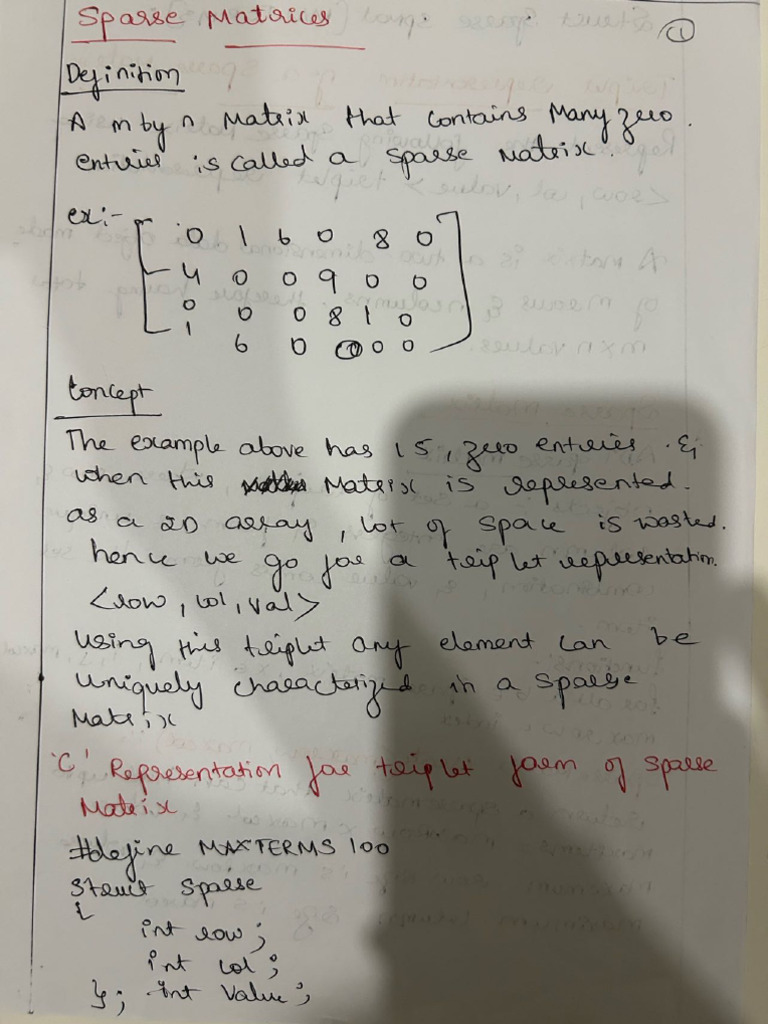 Sparse Matrices
①
Definition
A m by n Matrix that contains Many zero
entries is called a sparse Matrix.
ex:-
0 1 6 0 8 0
4 0 0 9 0 0
0 0 0 8 1 0
1 6 0 0 0 0
Concept
The example above has 15, zero entries . &
when this Matrix is represented.
as a 2D array , lot of space is wasted.
hence we go for a triplet representation.
<row, col, val>
using this triplet any element can be
uniquely characterized in a sparse
Matrix
'C' Representation for triplet form of sparse
Matrix
#define MAXTERMS 100
Struct Sparse
{
int row;
int col;
}; int value;